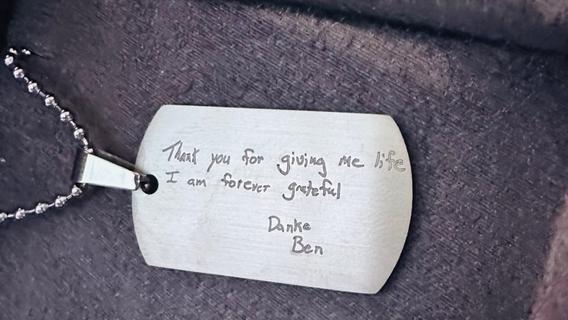 Thank you for giving me life
I am forever grateful
Danke
Ben